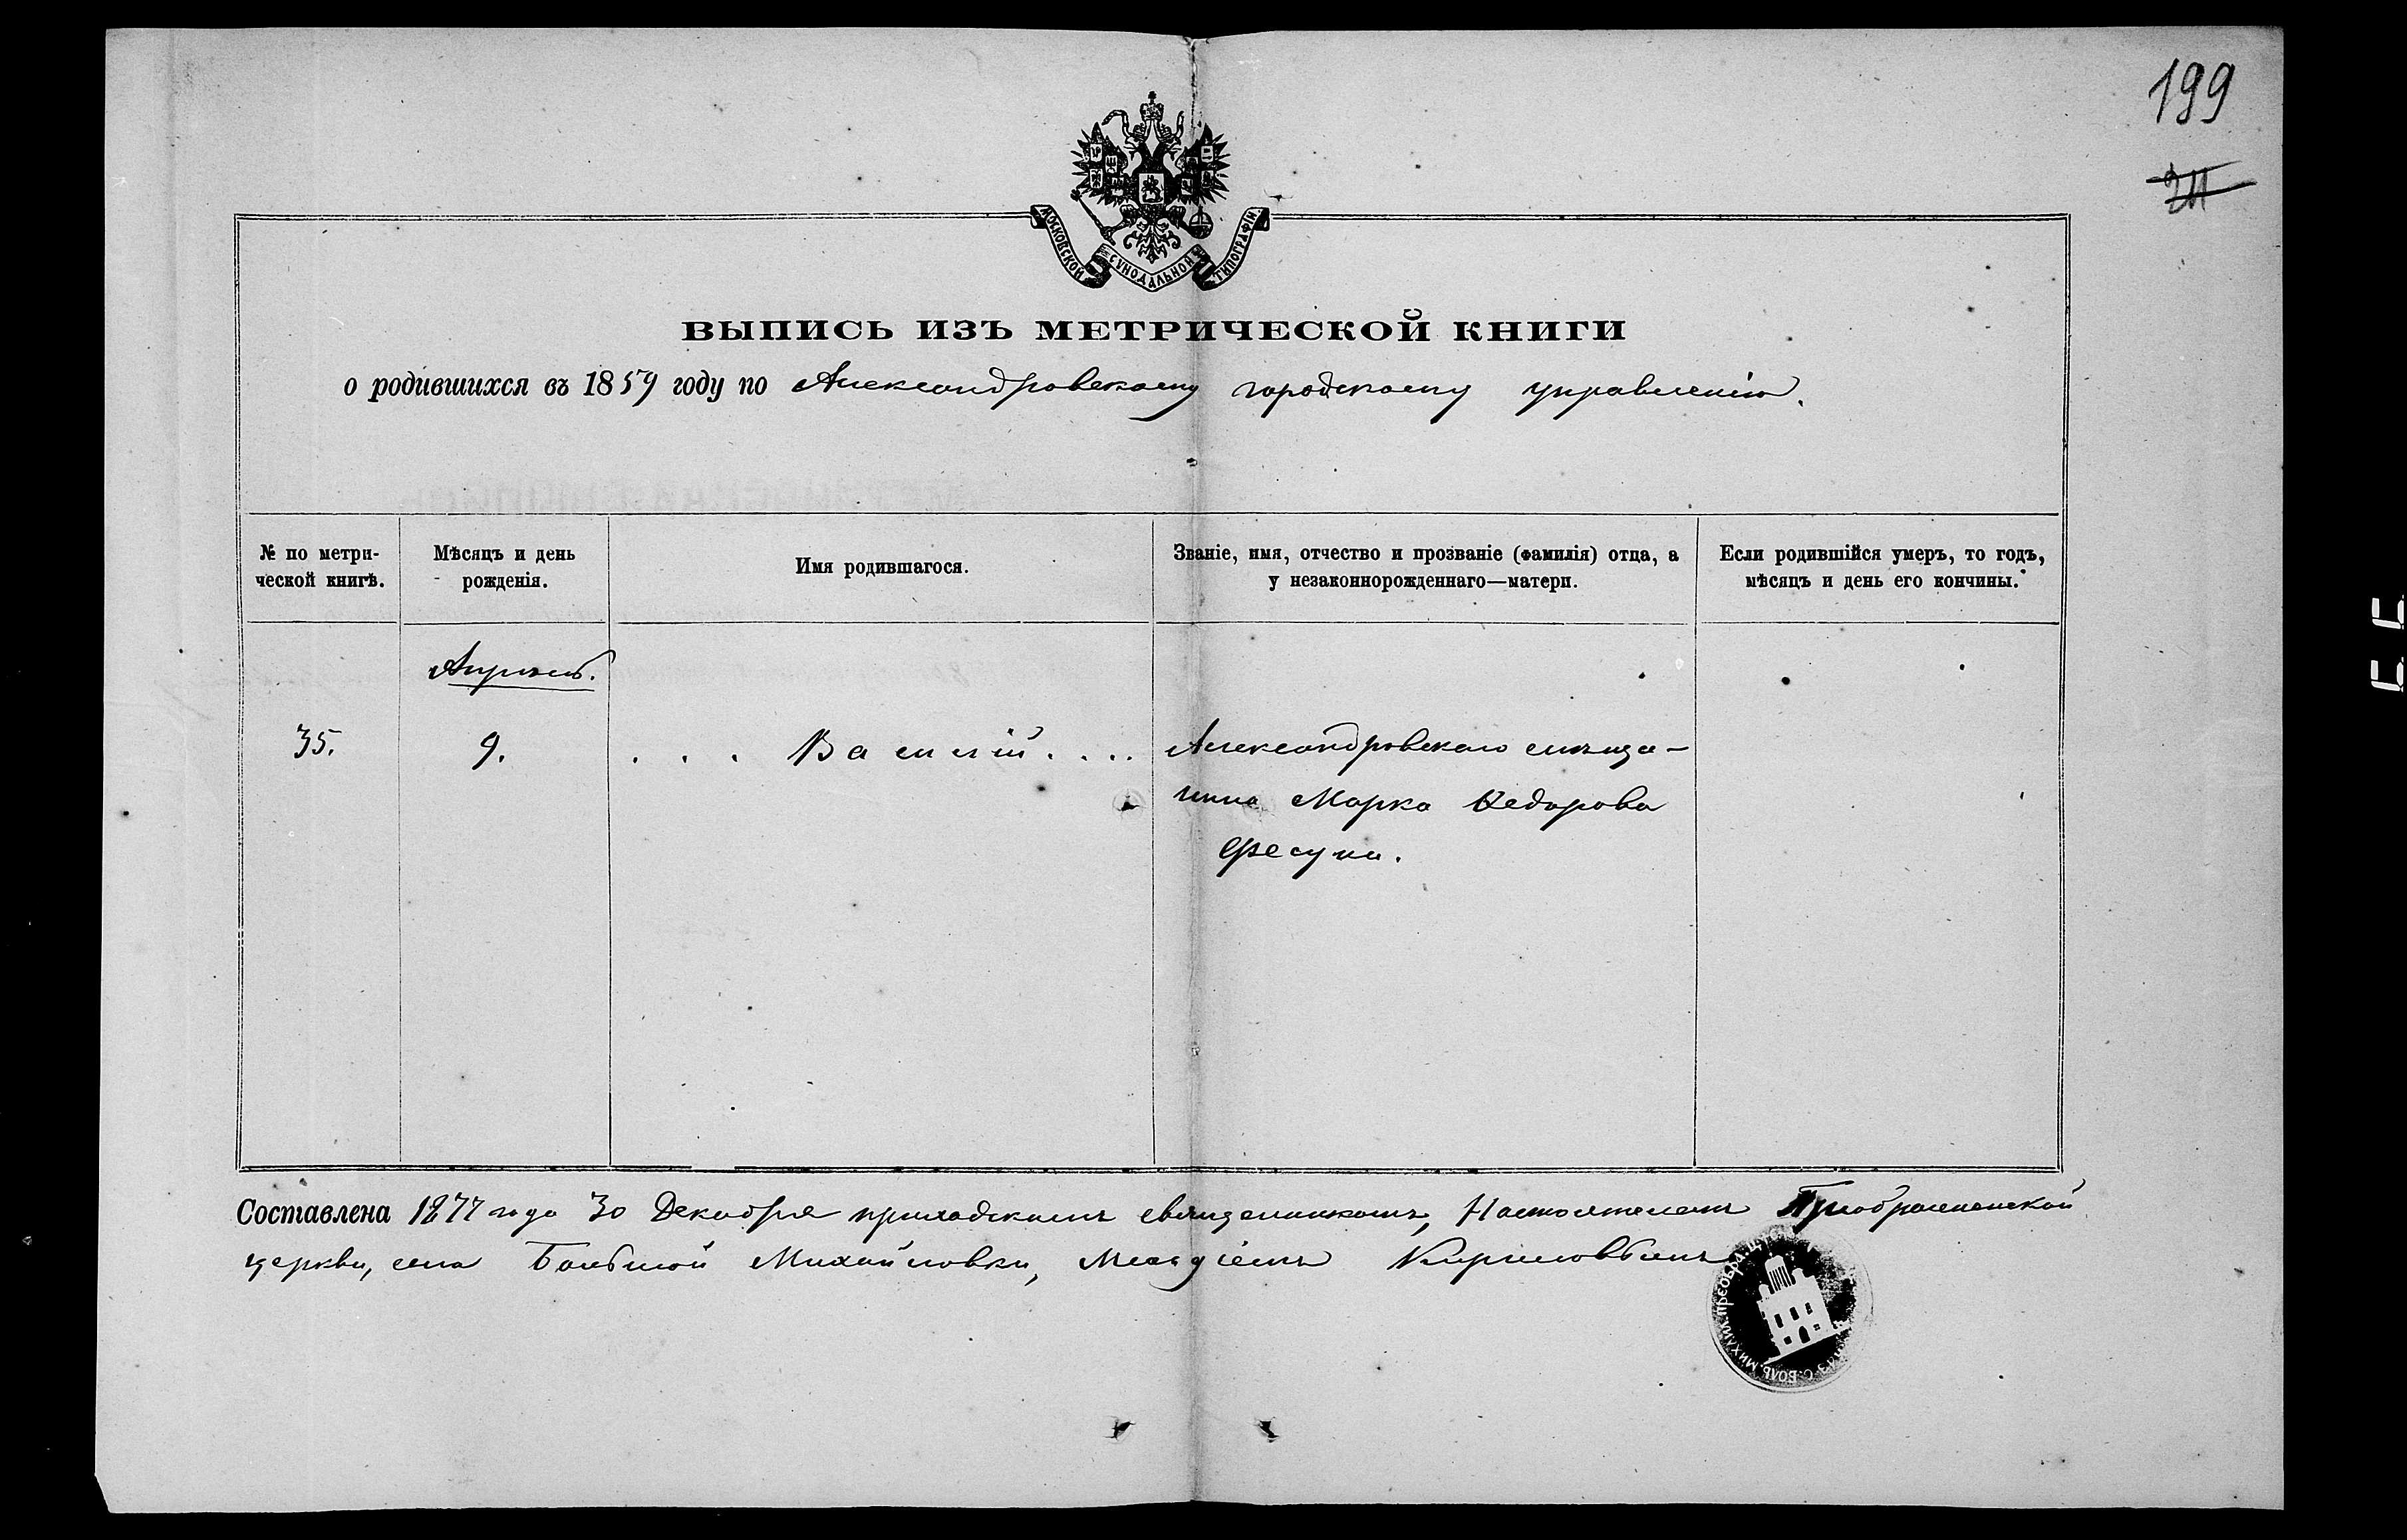 199
211
МОСКОВСКОЙ СѴНОДАЛЬНОЙ ТИПОГРАФІИ.
ВЫПИСЬ ИЗЪ МЕТРИЧЕСКОЙ КНИГИ
о родившихся въ 1859 году по Александровскому городскому управленію.
№ по метри-
ческой книгѣ.
Мѣсяцъ и день
рожденія.
Имя родившагося.
Званіе, имя, отчество и прозваніе (фамилія) отца, а
у незаконнорожденнаго—матери.
Если родившійся умеръ, то годъ,
мѣсяцъ и день его кончины.
Апрѣль.
35. 9. . . . Василій . . . . Александровскаго мѣща-
нина Марка Ѳедорова
Фесуна.
Составлена 1877 года 30 Декабря приходскимъ священникомъ, Настоятелемъ Преображенской
церкви, села Большой Михайловки, Кириловымъ